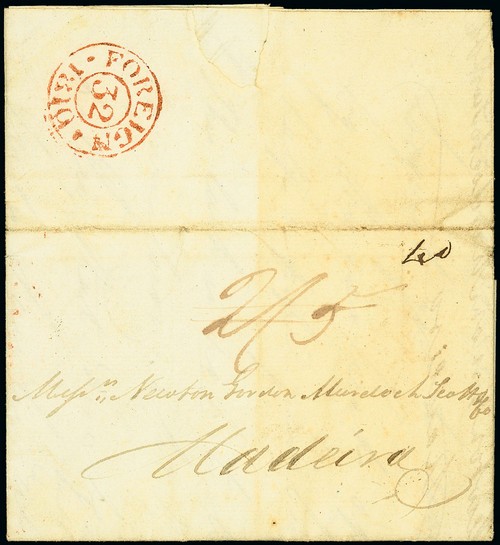 FOREIGN 1810
32
2/5
Messrs Newton Gordon Murdoch Scott & Co
Madeira